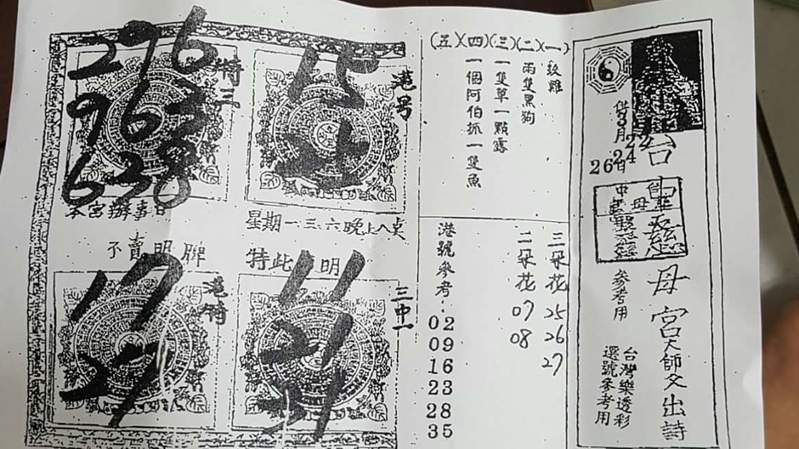 供3月22
24
26日
台
慈母宮大師父出詩
參考用
台灣樂透彩
選號參考用
(一)
(二)兩隻黑狗
(三)一隻草一點露
(四)一個阿伯抓一隻魚
(五)
三朵花 25 26 27
二朵花 07 08
港號參考: 02 09 16 23 28 35
港号
15
特三
296
963
638
本宮辦事日
星期一.三.六晚上八点
不賣明牌
特此 明
三中一
11
21
31
港特
17
27